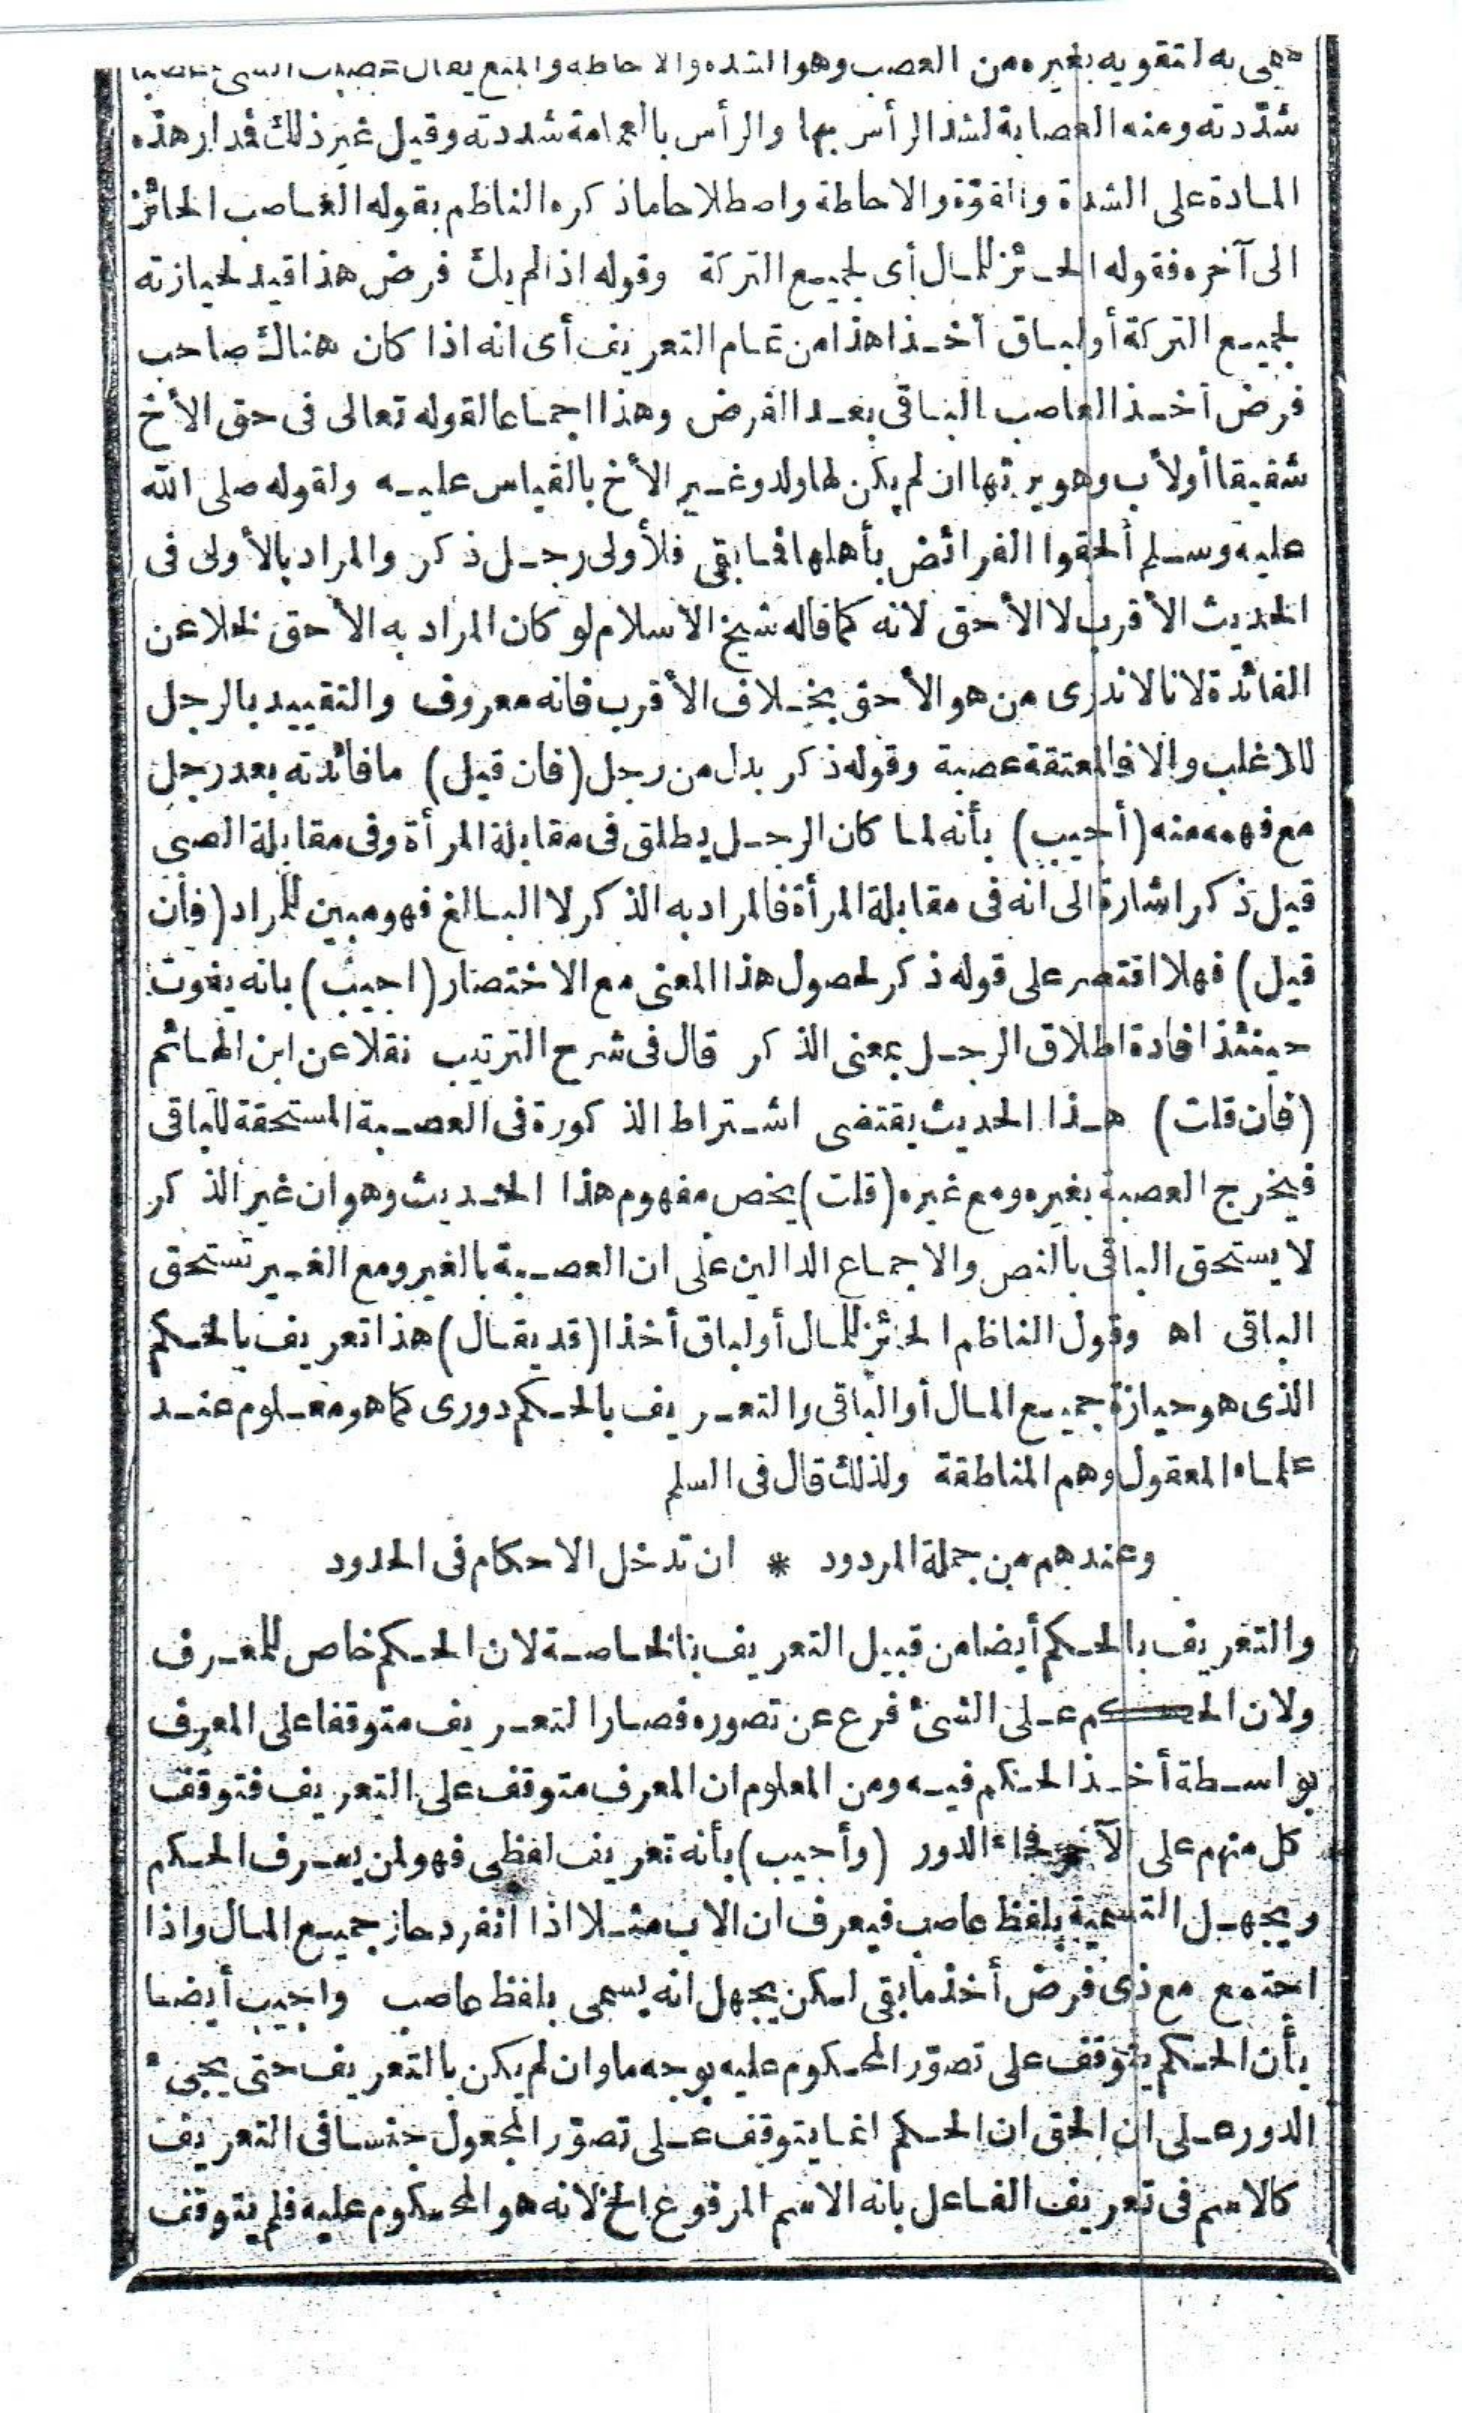 به لتقويه بغيره من العصب وهو الشدة والاحاطة والمنع يقال
شدّدته ومنه العصابة لشد الرأس بها والرأس بالعمامة شددته وقيل غير ذلك فدار هذه
المادة على الشدة والقوّة والاحاطة واصطلاحا ماذكره الناظم بقوله العاصب الحائز
الى آخره فقوله الحائز للمال أى لجميع التركة وقوله اذا لم يك فرض هذا قيد لحيازته
لجميع التركة أو لباق أخذا هذا من تمام التعريف أى انه اذا كان هناك صاحب
فرض أخذ العاصب الباقى بعد الفرض وهذا اجماعا لقوله تعالى فى حق الأخ
شقيقا أو لأب وهو يرثها ان لم يكن لها ولد وغير الأخ بالقياس عليه ولقوله صلى الله
عليه وسلم ألحقوا الفرائض بأهلها فما بقى فلأولى رجل ذكر والمراد بالأولى فى
الحديث الأقرب لا الأحق لانه كما قاله شيخ الاسلام لو كان المراد به الأحق لخلا عن
الفائدة لانا لاندرى من هو الأحق بخلاف الأقرب فانه معروف والتقييد بالرجل
للاغلب والا فالمعتقة عصبة وقوله ذكر بدل من رجل (فان قيل) مافائدته بعد رجل
مع فهمه منه (أجيب) بأنه لما كان الرجل يطلق فى مقابلة المرأة وفى مقابلة الصبى
قيل ذكر اشارة الى انه فى مقابلة المرأة فالمراد به الذكر لا البالغ فهو مبين للمراد (فان
قيل) فهلا اقتصر على قوله ذكر لحصول هذا المعنى مع الاختصار (اجيب) بانه يفوت
حينئذ افادة اطلاق الرجل بمعنى الذكر قال فى شرح الترتيب نقلا عن ابن الهائم
(فان قلت) هذا الحديث يقتضى اشتراط الذكورة فى العصبة المستحقة للباقى
فيخرج العصبة بغيره ومع غيره (قلت) يخص مفهوم هذا الحديث وهو ان غير الذكر
لا يستحق الباقى بالنص والاجماع الدالين على ان العصبة بالغير ومع الغير تستحق
الباقى اه وقول الناظم الحائز للمال أو لباق أخذا (قد يقال) هذا تعريف بالحكم
الذى هو حيازة جميع المال أو الباقى والتعريف بالحكم دورى كما هو معلوم عند
علماء المعقول وهم المناطقة ولذلك قال فى السلم
وعندهم من جملة المردود * ان تدخل الاحكام فى الحدود
والتعريف بالحكم أيضا من قبيل التعريف بالخاصة لان الحكم خاص للمعرف
ولان الحكم على الشئ فرع عن تصوره فصار التعريف متوقفا على المعرف
بواسطة أخذ الحكم فيه ومن المعلوم ان المعرف متوقف على التعريف فتوقف
كل منهم على الآخر فجاء الدور (وأجيب) بأنه تعريف لفظى فهو لمن يعرف الحكم
ويجهل التسمية بلفظ عاصب فيعرف ان الاب مثلا اذا انفرد حاز جميع المال واذا
اجتمع مع ذى فرض أخذ مابقى لكن يجهل انه يسمى بلفظ عاصب واجيب أيضا
بأن الحكم يتوقف على تصوّر المحكوم عليه بوجه ما وان لم يكن بالتعريف حتى يجىء
الدور على ان الحق ان الحكم انما يتوقف على تصوّر المجعول جنسا فى التعريف
كالاسم فى تعريف الفاعل بانه الاسم المرفوع الخ لانه هو المحكوم عليه فلم يتوقف